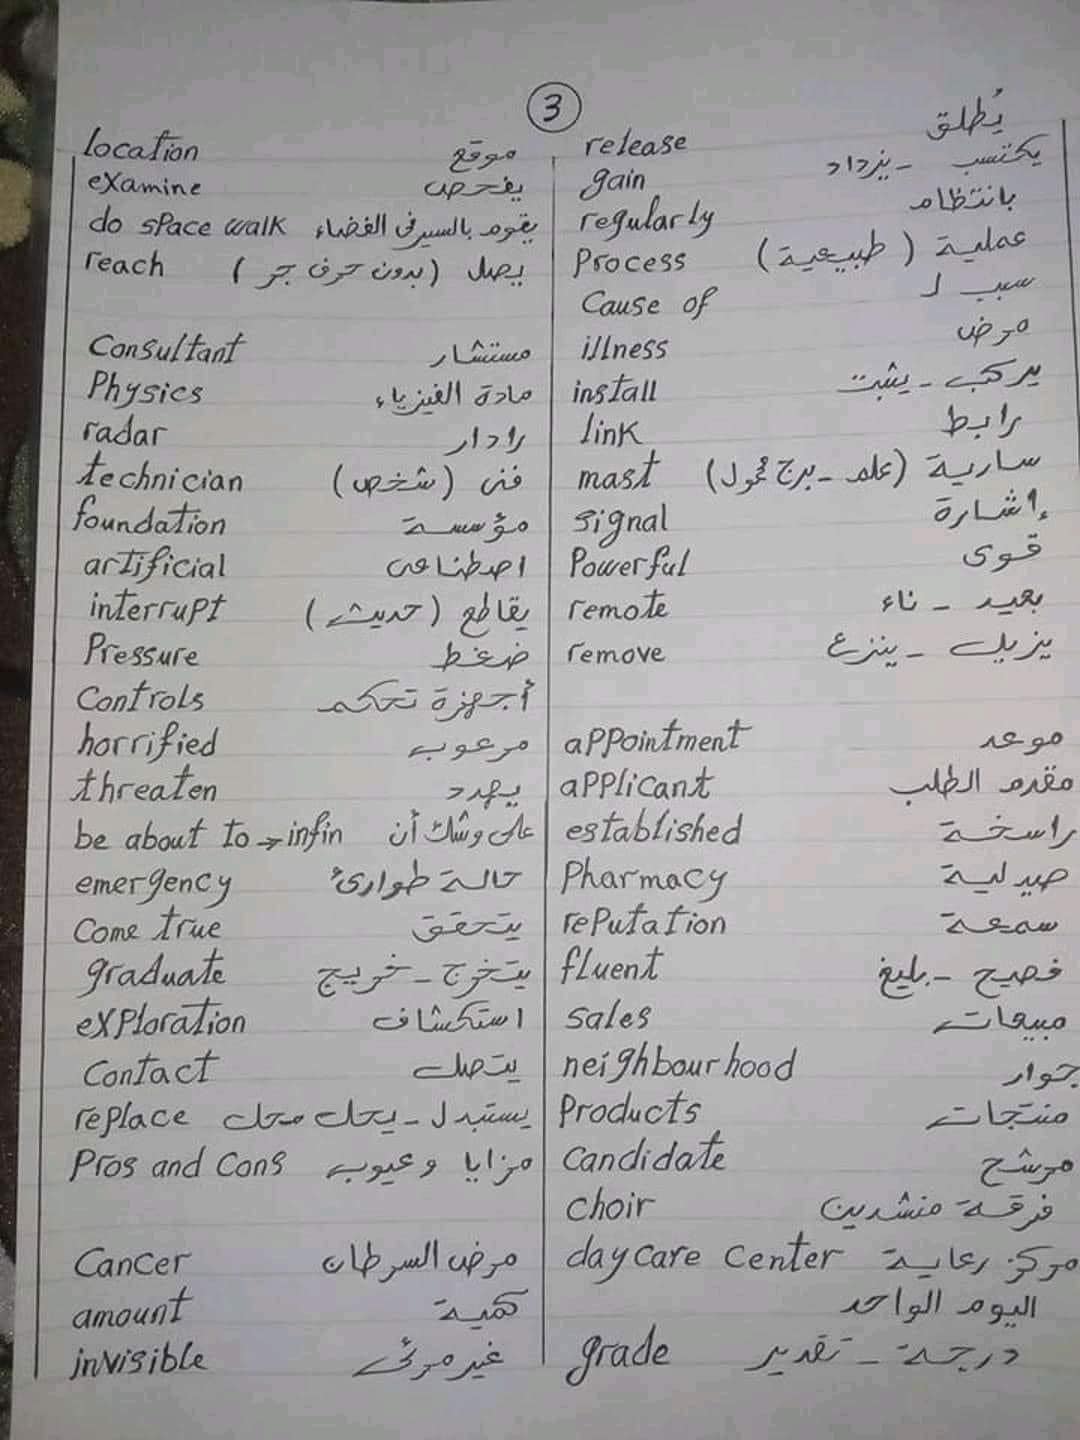 3
location موقع
examine يفحص
do space walk يقوم بالسير فى الفضاء
reach يصل (بدون حرف جر)
Consultant مستشار
Physics مادة الفيزياء
radar رادار
technician فنى (شخص)
foundation مؤسسة
artificial اصطناعى
interrupt يقاطع (حديث)
Pressure ضغط
Controls أجهزة تحكم
horrified مرعوب
threaten يهدد
be about to → infin على وشك أن
emergency حالة طوارئ
Come true يتحقق
graduate يتخرج - خريج
exploration استكشاف
Contact يتصل
replace يستبدل - يحل محل
Pros and Cons مزايا وعيوب
Cancer مرض السرطان
amount كمية
invisible غير مرئى
release يُطلق
gain يكتسب - يزداد
regularly بانتظام
Process عملية (طبيعية)
Cause of سبب لـ
illness مرض
install يركب - يثبت
link رابط
mast سارية (علم - برج محمول)
signal إشارة
Powerful قوى
remote بعيد - ناء
remove يزيل - ينزع
appointment موعد
applicant مقدم الطلب
established راسخة
Pharmacy صيدلية
reputation سمعة
fluent فصيح - بليغ
sales مبيعات
neighbourhood جوار
Products منتجات
Candidate مرشح
choir فرقة منشدين
daycare center مركز رعاية
اليوم الواحد
grade درجة - تقدير